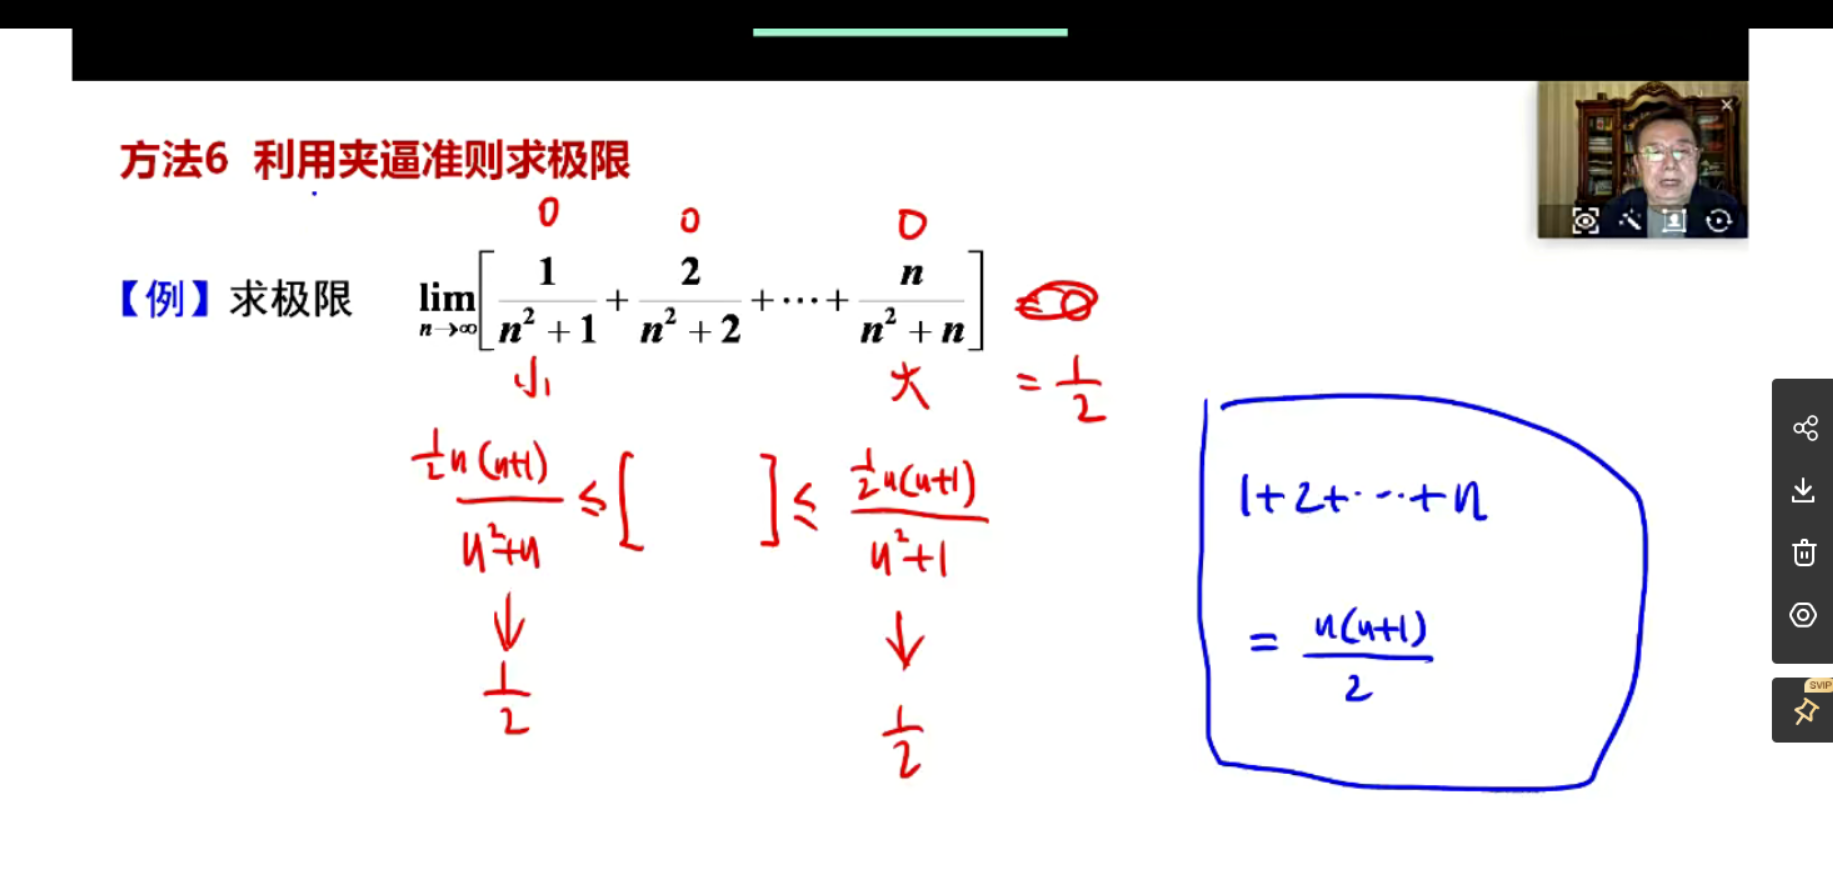 方法6 利用夹逼准则求极限
0 0 0
【例】求极限 lim n→∞ [ 1/(n²+1) + 2/(n²+2) + ⋯ + n/(n²+n) ] = 0
小 大 = 1/2
½n(n+1)/(n²+n) ≤ [ ] ≤ ½n(n+1)/(n²+1)
↓ ↓
1/2 1/2
1+2+⋯+n
= n(n+1)/2
SVIP